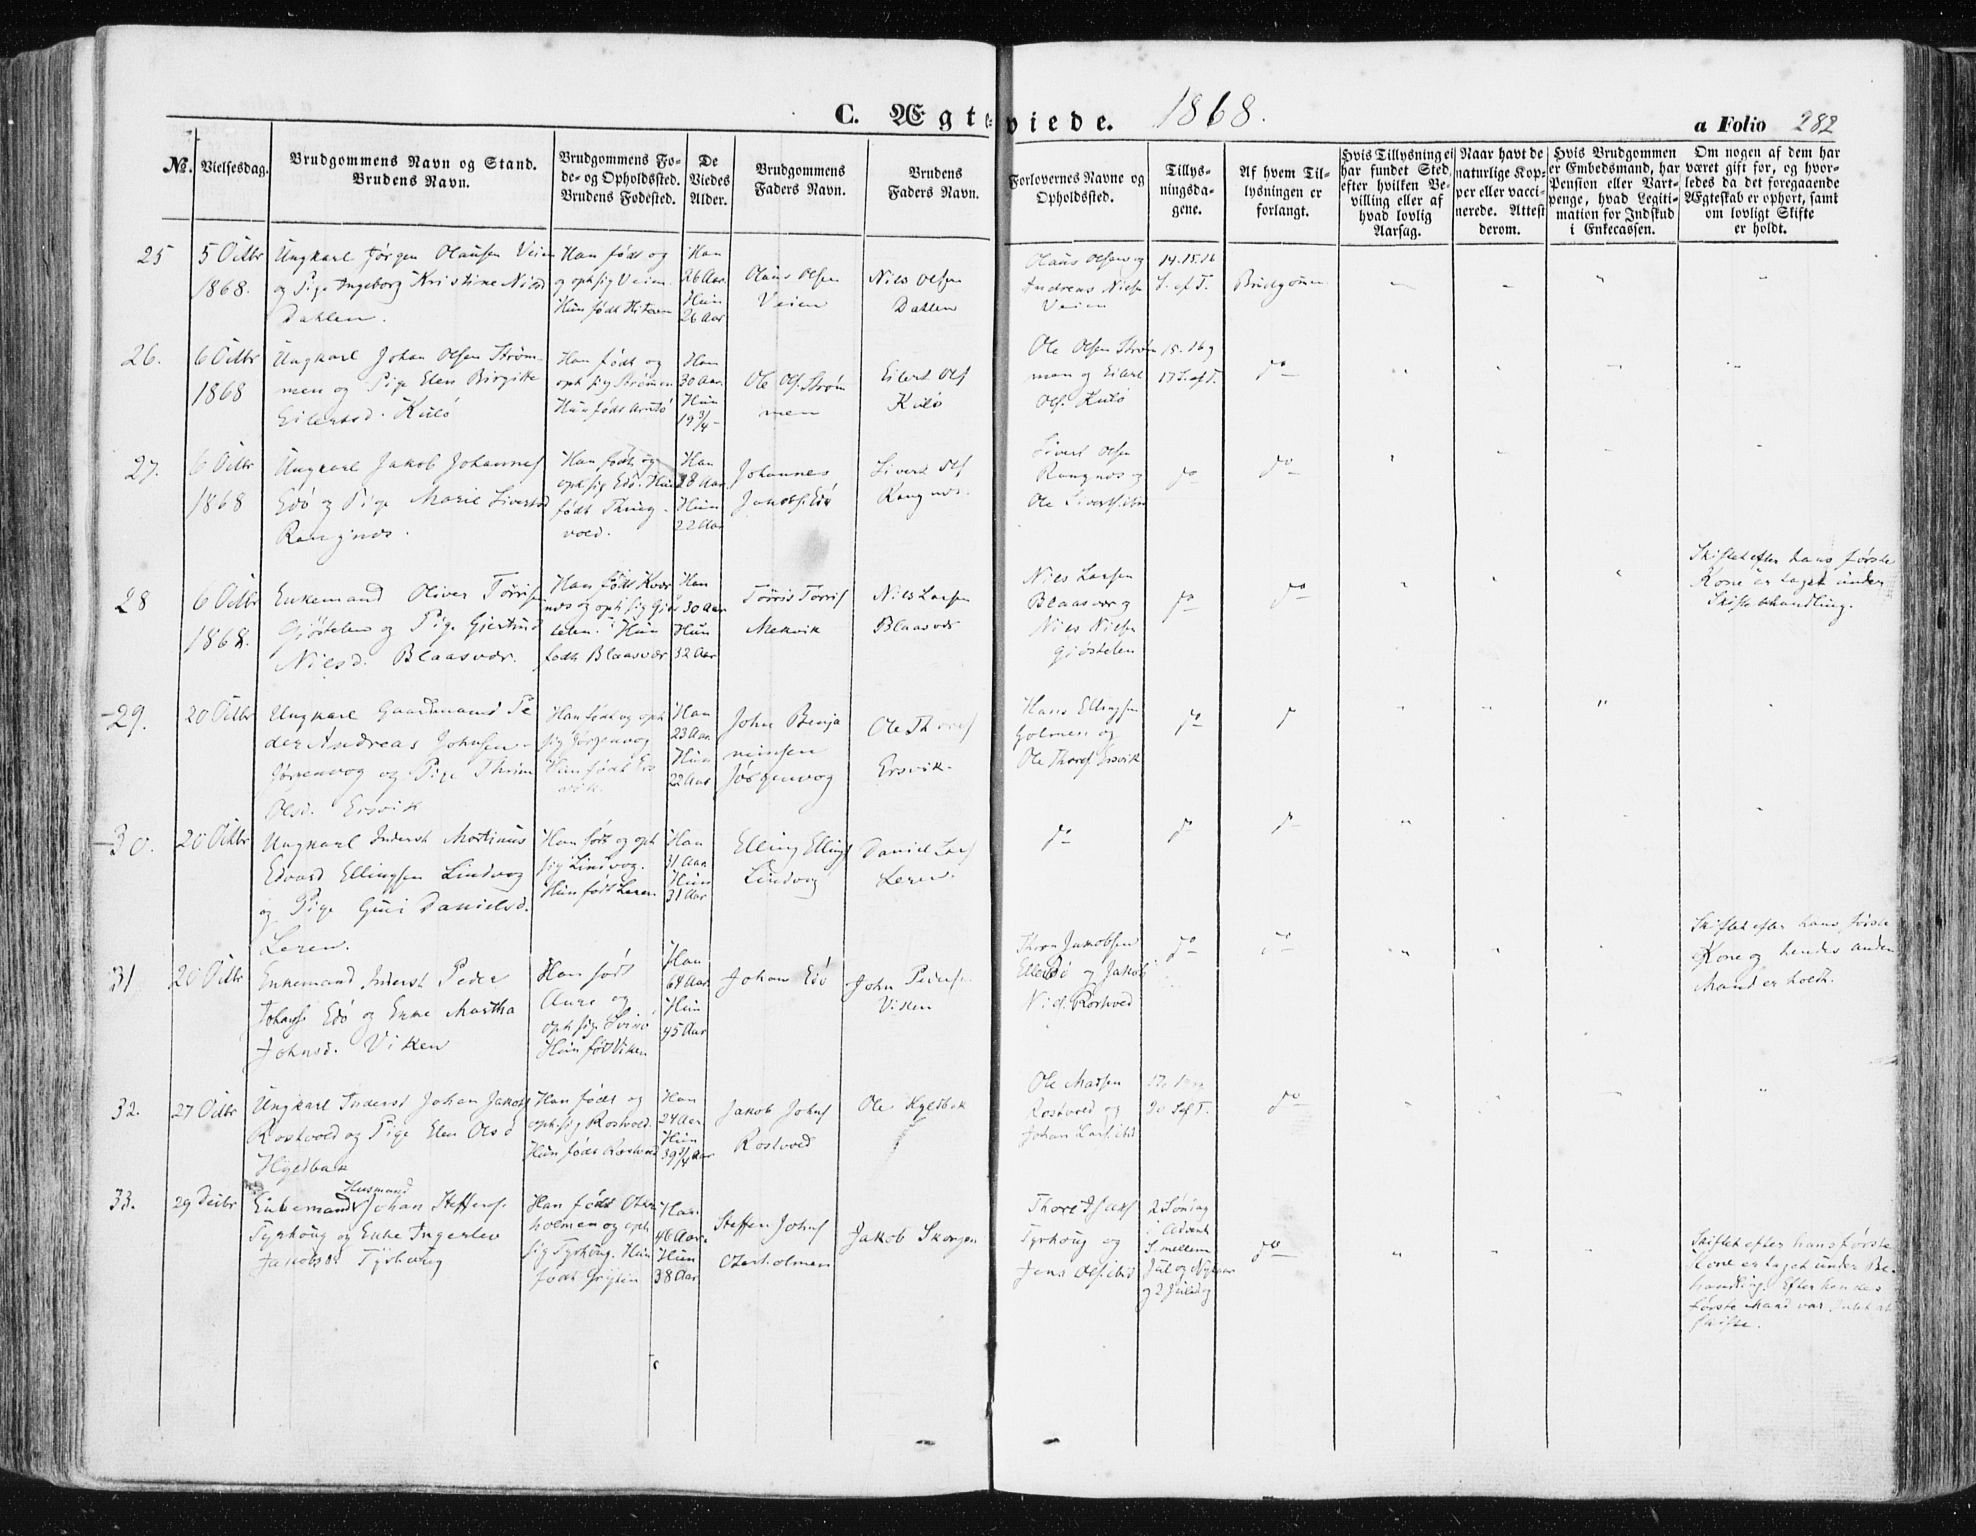 C. Ægteviede. 1868.
a Folio 282
№.
Vielsesdag.
Brudgommens Navn og Stand.
Brudens Navn.
Brudgommens Fo-
de- og Opholdssted.
Brudens Fødested.
De
Viedes
Alder.
Brudgommens
Faders Navn.
Brudens
Faders Navn.
Forlovernes Navne og
Opholdssted.
Tillys-
ningsda-
gene.
Af hvem Til-
lysningen er
forlangt.
Hvis Tillysning ei
har fundet Sted,
efter hvilken Be-
villing eller af
hvad lovlig
Aarsag.
Naar havt de
naturlige Kop-
per eller vacci-
nerede. Attest
derom.
Hvis Brudgommen
er Embedsmand, har
Pension eller Vart-
penge, hvad Legiti-
mation for Indskud
i Enkecassen.
Om nogen af dem har
været gift før, og hvor-
ledes da det foregaaende
Ægteskab er ophørt, samt
om lovligt Skifte
er holdt.
25
5 Octbr
1868.
Ungkarl Jørgen Olausen Veien
og Pige Ingeborg Kristine Nilsd
Dahlen.
Han født og
og oph sig Veien
Hun født Hiteren
Han
26 Aar
Hun
26 Aar
Olaus Olsen
Veien
Nils Olsen
Dahlen
Olaus Olsen og
Andreas Nielsen
Veien
14. 15. 16
S. ef T.
Brudgommen
26.
6 Octbr
1868
Ungkarl Johan Olsen Strøm-
men og Pige Elen Birgitte
Eilertsd. Kulø
Han født og
oph sig Strømen
Hun født
Han
30 Aar
Hun
19 3/4
Ole Ols. Strøm
men
Eilert Ols
Kulø
Ole Olsen Strøm
men og Eilert
Ols. Kulø
15. 16 og
17 S. ef T.
do
27.
6 Octbr
1868
Ungkarl Jakob Johannes
Edø og Pige Marie Sivertsd
Rangnæs.
Han født og
oph sig Edø. Hun
født Thing-
vold.
Han
28 Aar
Hun
22 Aar
Johannes
Jakobs Edø
Sivert Ols
Rangnæs.
Sivert Olsen
Rangnæs og
Ole Siverts. ibid
do
do
28
6 Octbr
1868.
Enkemand Oliver Tørrisen
Gjøstelen og Pige Gjertrud
Nilsd. Blaasvær.
Han født Kvær
næs og oph sig Gjøs
telen. Hun
født Blaasvær
Han
30 Aar
Hun
32 Aar
Tørris Tørris
Mekvik
Nils Larsen
Blaasvær
Niels Larsen
Blaasvær og
Niels Nielsen
Gjøstelen
do
do
Skiftet efter hans første
Kone er taget under
Skiftebehandling.
29.
20 Octbr
Ungkarl Gaardmand Pe
der Andreas Johnsen
Jørgenvog og Pige
Olsd. Ersvik
Han født og oph
sig Jørgenvog
Hun født Ers
vik.
Han
23 Aar
Hun
22 Aar
John Benja
minsen
Jørgenvog
Ole Thores
Ersvik.
Hans Ellingsen
Golmen og
Ole Thores Ersvik
do
do
30.
20 Octbr
Ungkarl Inderst Martinus
Edvard Ellingsen Lindvog
og Pige Guri Danielsd.
Leren.
Han født og oph
sig Lindvog.
Hun født Leren.
Han
31 Aar
Hun
31 Aar
Elling Ellings
Lindvog
Daniel Lars
Leren.
do
do
do
31
20 Octbr
Enkemand Inderst Peder
Johans Edø og Enke Martha
Johnsd. Viken
Han født
Aure og
oph sig
Hun født Viken
Han
64 Aar
Hun
45 Aar
Johan Edø
John Peders.
Viken
Thron Jakobsen
og Jakob
Nils. Rostvold
do
do
Skiftet efter hans første
Kone og hendes anden
Mand er holdt.
32.
27 Octbr
Ungkarl Inderst Johan Jakobs
Rostvold og Pige Elen Olsd
Hyldbak
Han født og
oph sig Rostvold
Hun født Rostvold
Han
24 Aar
Hun
39 3/4 Aar
Jakob Johns
Rostvold
Ole Hyldbak
Ole Matsen
Rostvold og
Johan Lars. ibid
20 S. ef T.
do
33.
29 Decbr
Husmand
Enkemand Johan Steffens.
Tyrhoug og Enke Ingerlev
Jakobsd Tyrhoug
Han født Oter
holmen og oph
sig Tyrhoug. Hun
født Griptin
Han
46 Aar
Hun
38 Aar
Steffen Johns
Oterholmen
Jakob Skorgen
Thore Isaks
Tyrhoug og
Jens Ols. ibid
2 Søndag
i Advent
S. mellem
Jul og Nytaar
og 2 Juledag
do
Skiftet efter hans første
Kone er taget under Be-
handling. Efter hendes
første Mand var Intet at
skifte.